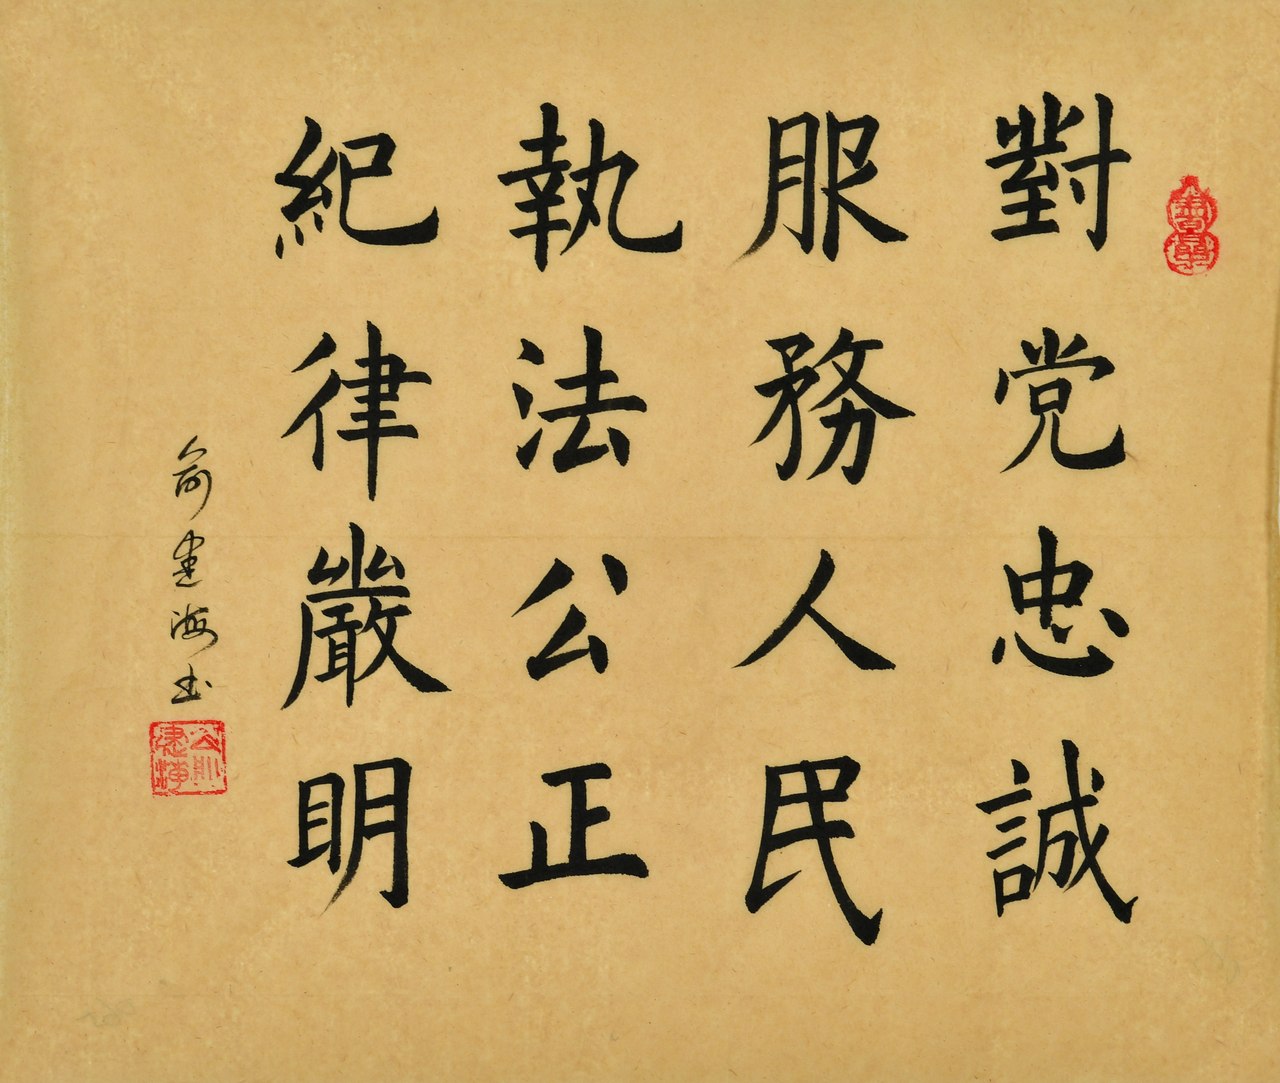 對党忠誠
服務人民
執法公正
紀律嚴明
俞建海书